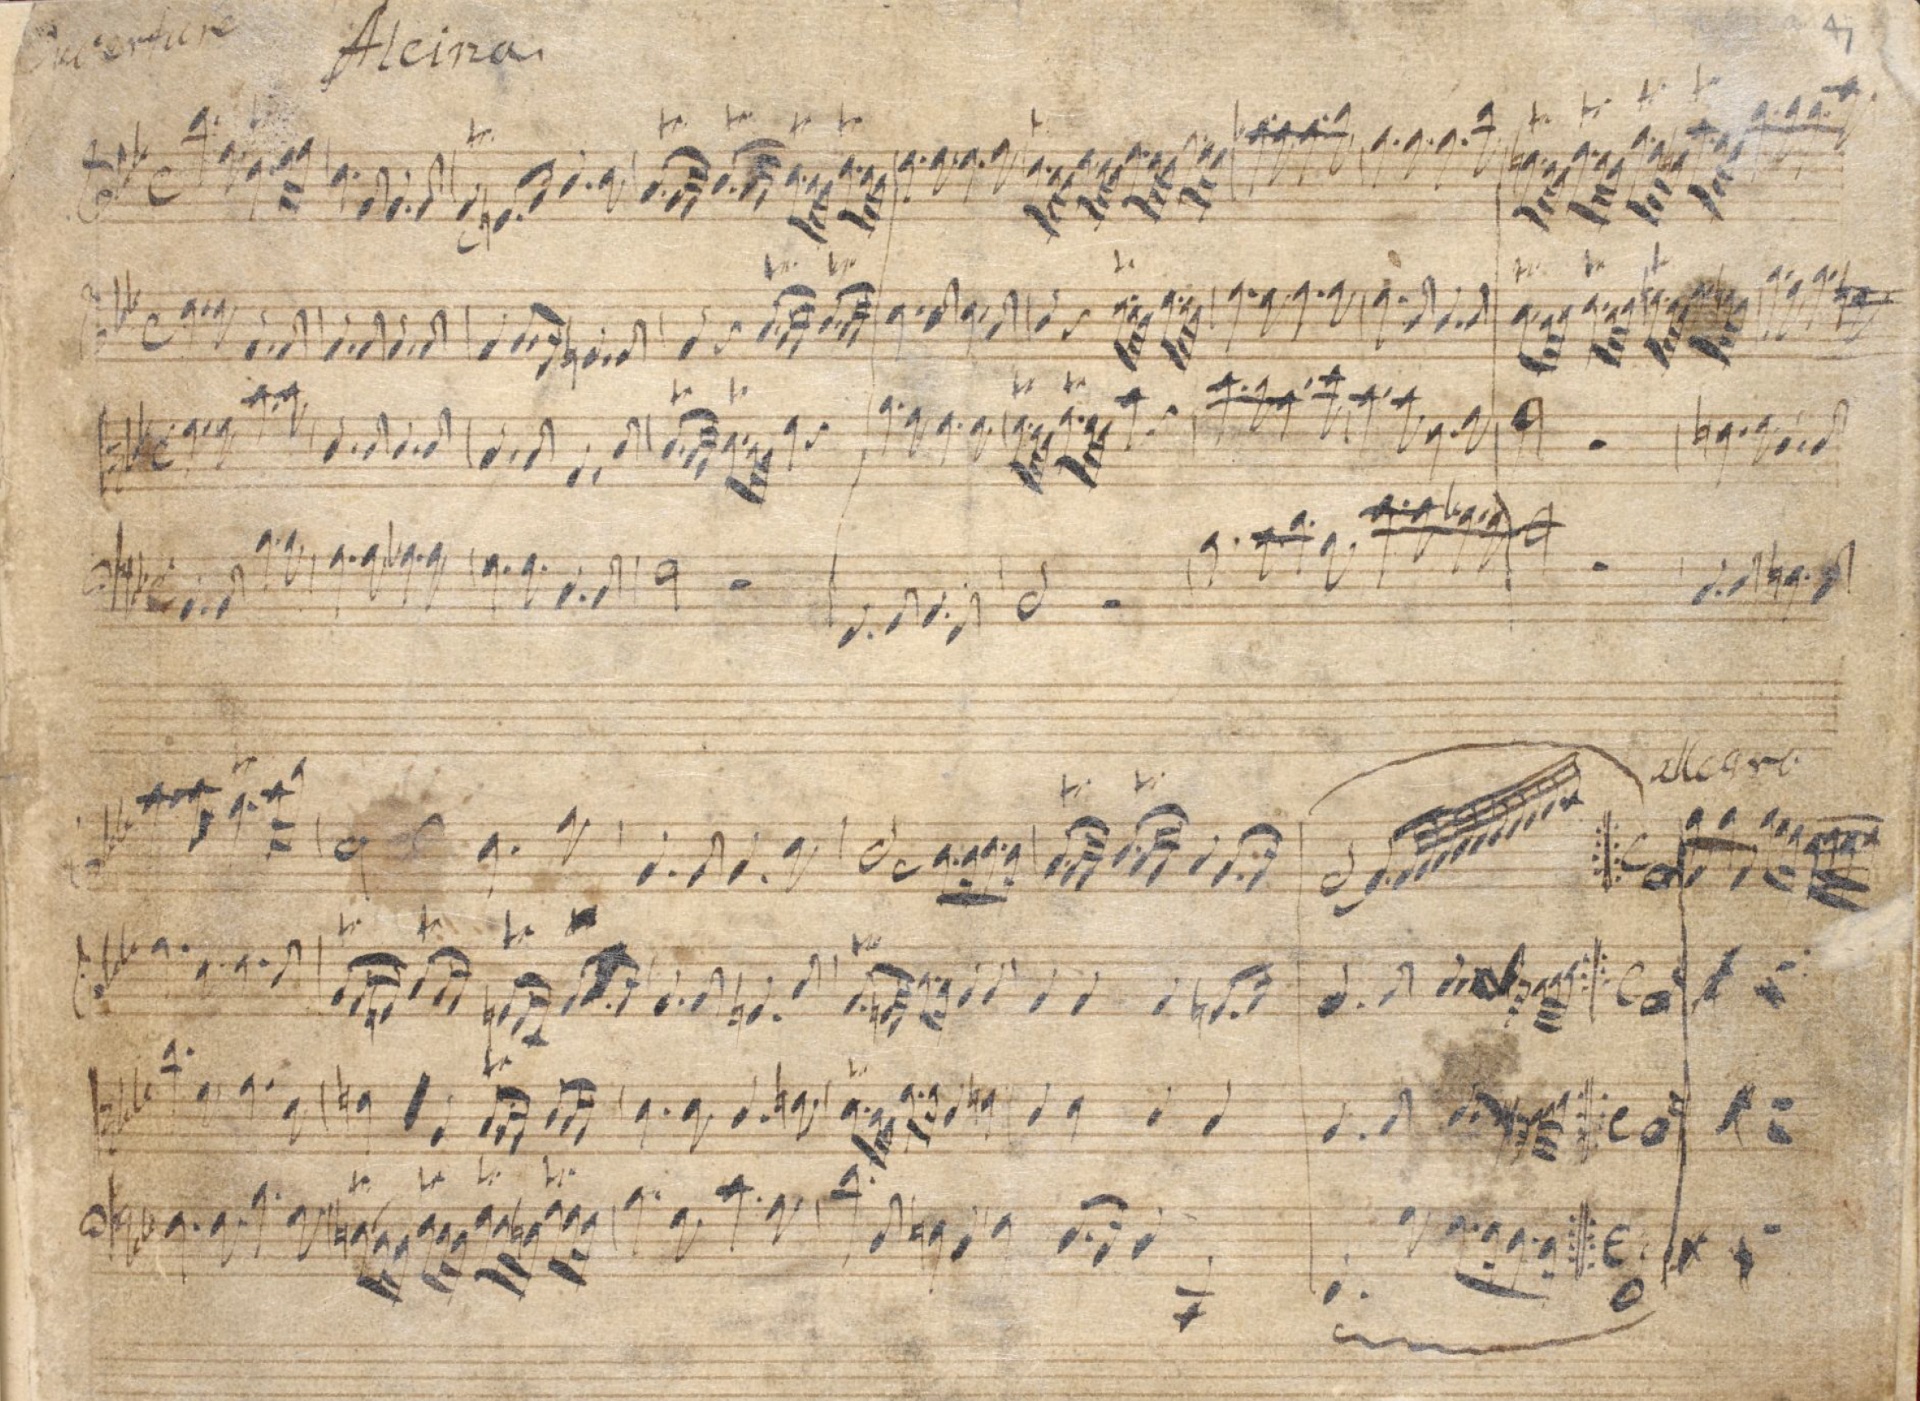 Ouverture Alcina.
4
allegro